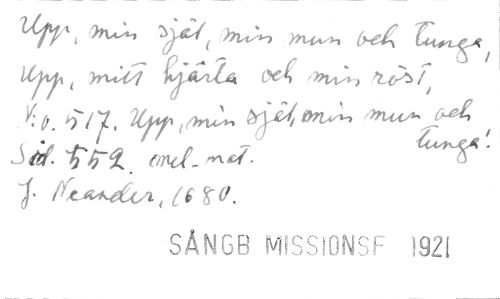 Upp, min själ, min mun och tunga,
Upp, mitt hjärta och min röst,
N:o. 517. Upp, min själ, min mun och
tunga!
Sid. 552. mel-not.
J. Neander, 1680.
SÅNGB MISSIONSF 1921